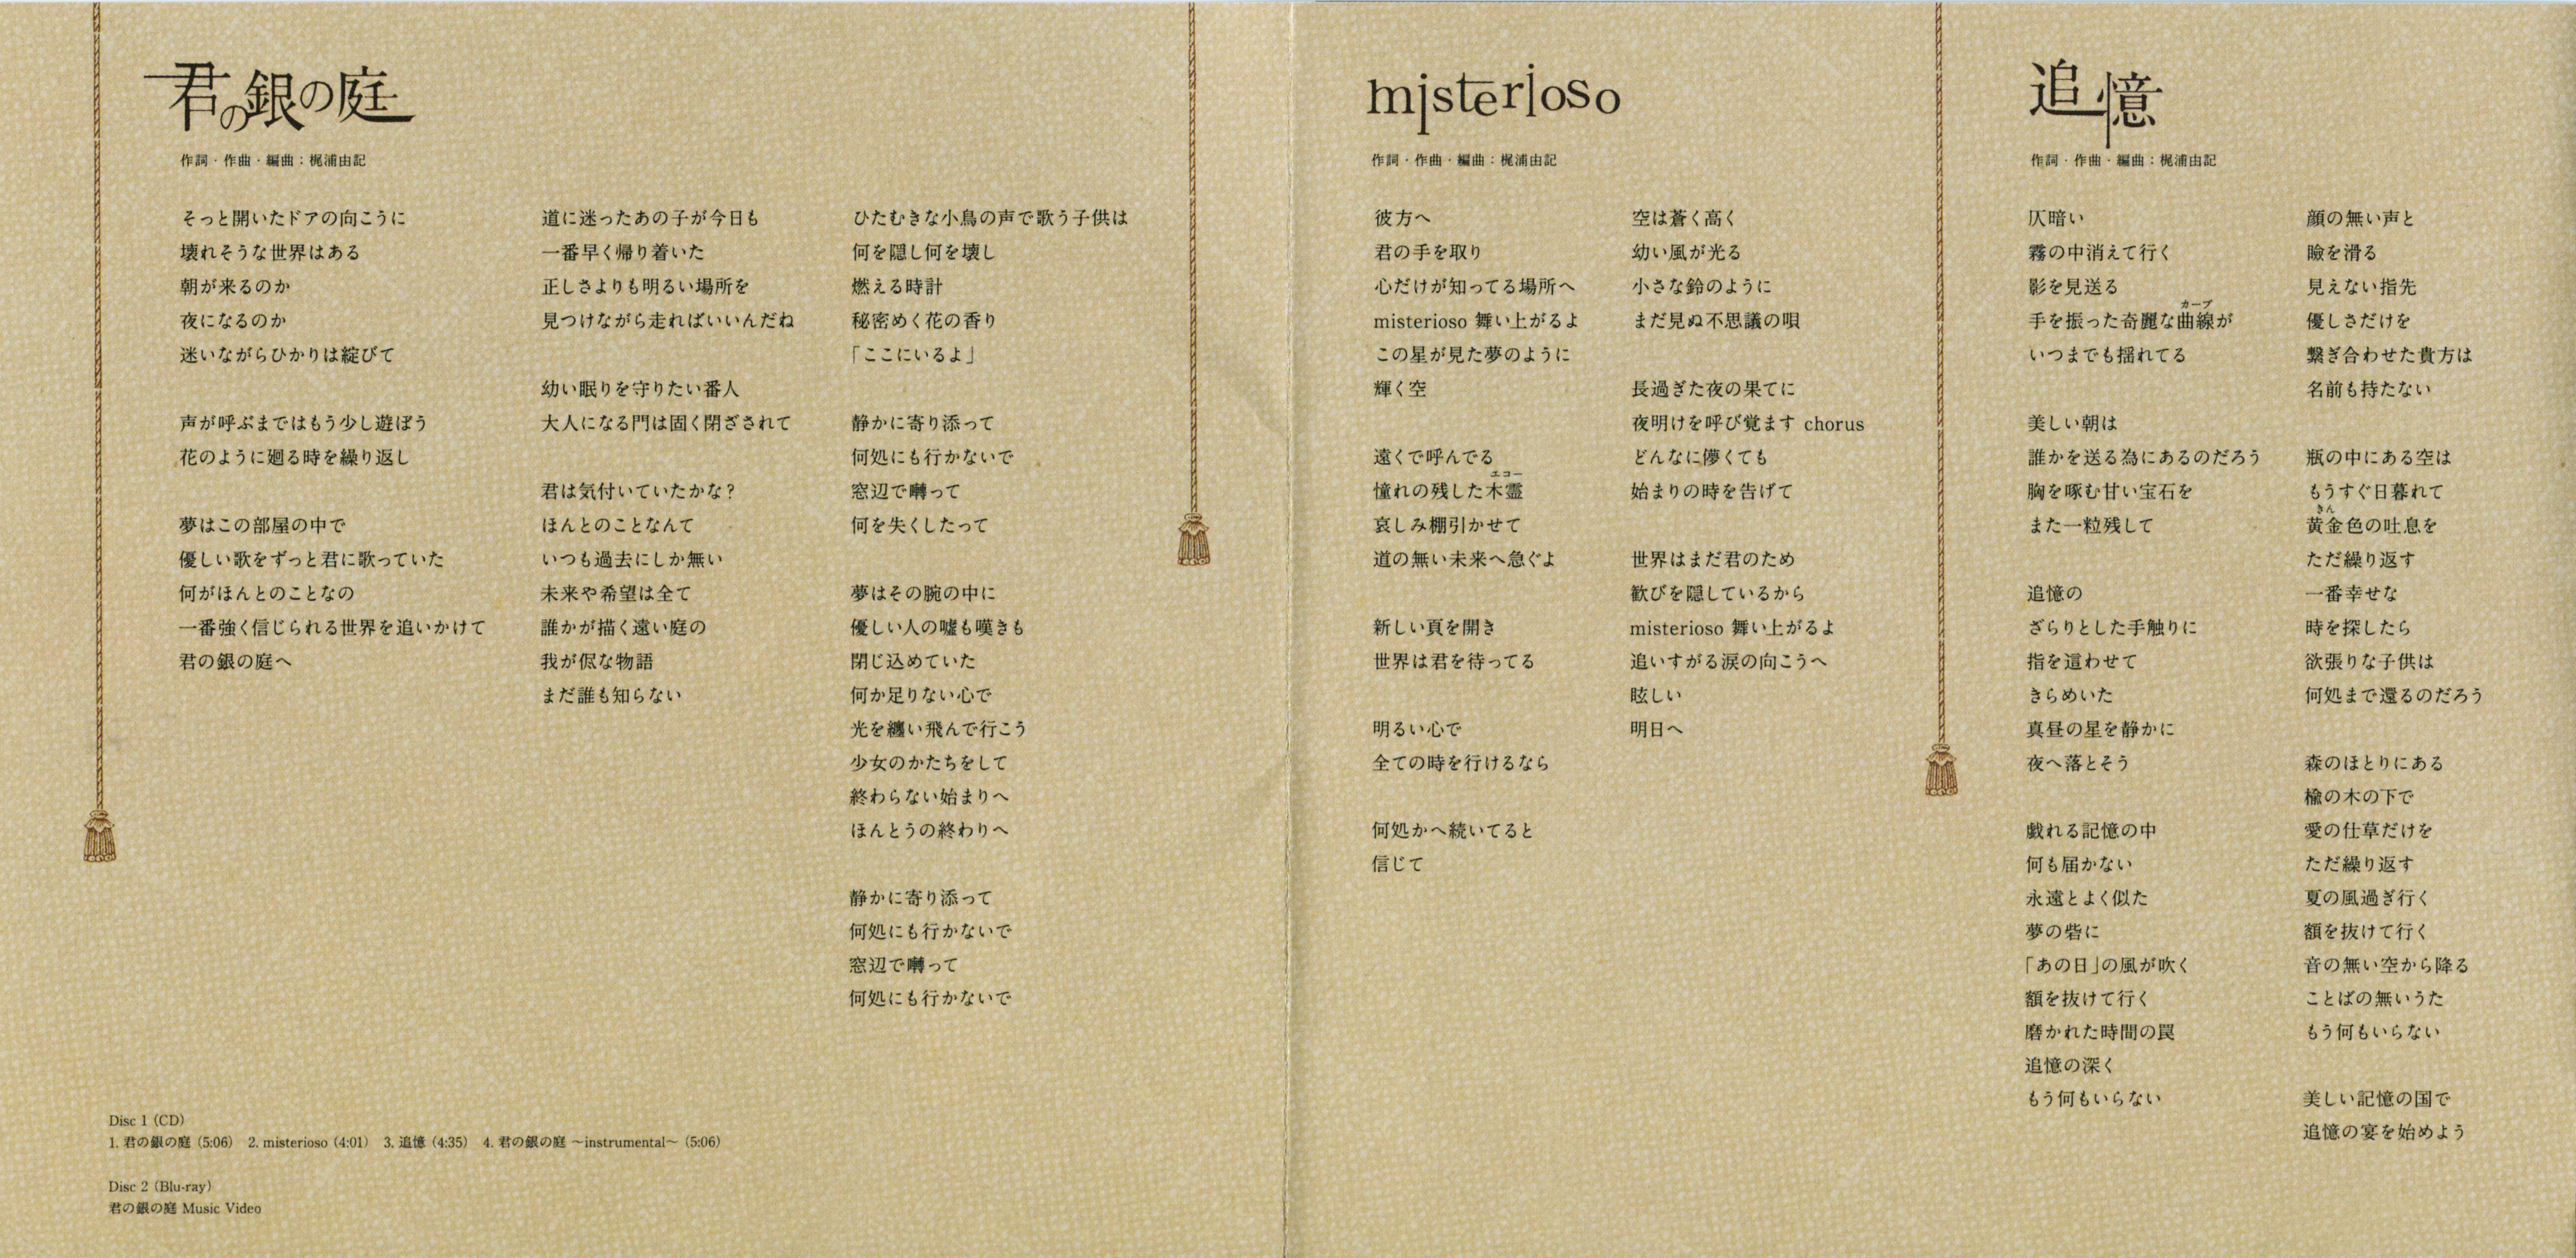 君の銀の庭
作詞・作曲・編曲：梶浦由記
そっと開いたドアの向こうに
壊れそうな世界はある
朝が来るのか
夜になるのか
迷いながらひかりは綻びて
声が呼ぶまではもう少し遊ぼう
花のように廻る時を繰り返し
夢はこの部屋の中で
優しい歌をずっと君に歌っていた
何がほんとのことなの
一番強く信じられる世界を追いかけて
君の銀の庭へ
道に迷ったあの子が今日も
一番早く帰り着いた
正しさよりも明るい場所を
見つけながら走ればいいんだね
幼い眠りを守りたい番人
大人になる門は固く閉ざされて
君は気付いていたかな？
ほんとのことなんて
いつも過去にしか無い
未来や希望は全て
誰かが描く遠い庭の
我が侭な物語
まだ誰も知らない
ひたむきな小鳥の声で歌う子供は
何を隠し何を壊し
燃える時計
秘密めく花の香り
「ここにいるよ」
静かに寄り添って
何処にも行かないで
窓辺で囀って
何を失くしたって
夢はその腕の中に
優しい人の嘘も嘆きも
閉じ込めていた
何か足りない心で
光を纏い飛んで行こう
少女のかたちをして
終わらない始まりへ
ほんとうの終わりへ
静かに寄り添って
何処にも行かないで
窓辺で囀って
何処にも行かないで
Disc 1 (CD)
1. 君の銀の庭 (5:06)　2. misterioso (4:01)　3. 追憶 (4:35)　4. 君の銀の庭 ～instrumental～ (5:06)
Disc 2 (Blu-ray)
君の銀の庭 Music Video
misterioso
作詞・作曲・編曲：梶浦由記
彼方へ
君の手を取り
心だけが知ってる場所へ
misterioso 舞い上がるよ
この星が見た夢のように
輝く空
遠くで呼んでる
エコー
憧れの残した木霊
哀しみ棚引かせて
道の無い未来へ急ぐよ
新しい頁を開き
世界は君を待ってる
明るい心で
全ての時を行けるなら
何処かへ続いてると
信じて
空は蒼く高く
幼い風が光る
小さな鈴のように
まだ見ぬ不思議の唄
長過ぎた夜の果てに
夜明けを呼び覚ます chorus
どんなに儚くても
始まりの時を告げて
世界はまだ君のため
歓びを隠しているから
misterioso 舞い上がるよ
追いすがる涙の向こうへ
眩しい
明日へ
追憶
作詞・作曲・編曲：梶浦由記
仄暗い
霧の中消えて行く
影を見送る
カーブ
手を振った奇麗な曲線が
いつまでも揺れてる
美しい朝は
誰かを送る為にあるのだろう
胸を啄む甘い宝石を
また一粒残して
追憶の
ざらりとした手触りに
指を這わせて
きらめいた
真昼の星を静かに
夜へ落とそう
戯れる記憶の中
何も届かない
永遠とよく似た
夢の砦に
「あの日」の風が吹く
額を抜けて行く
磨かれた時間の罠
追憶の深く
もう何もいらない
顔の無い声と
瞼を滑る
見えない指先
優しさだけを
繋ぎ合わせた貴方は
名前も持たない
瓶の中にある空は
もうすぐ日暮れて
きん
黄金色の吐息を
ただ繰り返す
一番幸せな
時を探したら
欲張りな子供は
何処まで還るのだろう
森のほとりにある
楡の木の下で
愛の仕草だけを
ただ繰り返す
夏の風過ぎ行く
額を抜けて行く
音の無い空から降る
ことばの無いうた
もう何もいらない
美しい記憶の国で
追憶の宴を始めよう